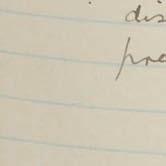 dis
pre